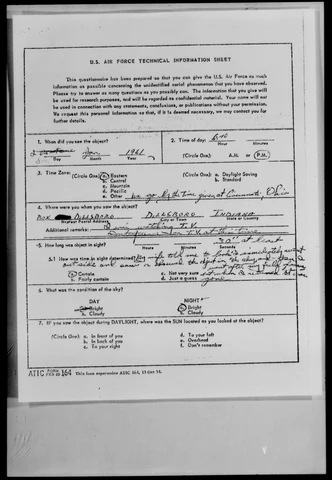 U.S. AIR FORCE TECHNICAL INFORMATION SHEET
This questionnaire has been prepared so that you can give the U.S. Air Force as much
information as possible concerning the unidentified aerial phenomenon that you have observed.
Please try to answer as many questions as you possibly can. The information that you give will
be used for research purposes, and will be regarded as confidential material. Your name will not
be used in connection with any statements, conclusions, or publications without your permission.
We request this personal information so that, if it is deemed necessary, we may contact you for
further details.
1. When did you see the object?
Jan 1961
Day Month Year
2. Time of day:
Hour Minutes
(Circle One): A.M. or P.M.
3. Time Zone:
(Circle One): a. Eastern
b. Central
c. Mountain
d. Pacific
e. Other
(Circle One): a. Daylight Saving
b. Standard
we go by the time given at Cincinnati, Ohio
4. Where were you when you saw the object?
Box Dillsboro Dillsboro Indiana
Nearest Postal Address City or Town State or County
Additional remarks: watching T.V.
T.V. at this time
5. How long was object in sight?
30" at least
Hours Minutes Seconds
5.1 How was time in sight determined?
a. Certain
b. Fairly certain
c. Not very sure
d. Just a guess
6. What was the condition of the sky?
DAY
a. Bright
b. Cloudy
NIGHT
a. Bright
b. Cloudy
7. IF you saw the object during DAYLIGHT, where was the SUN located as you looked at the object?
(Circle One): a. In front of you
b. In back of you
c. To your right
d. To your left
e. Overhead
f. Don't remember
ATIC FORM 164 This form supersedes ATIC 164, 13 Oct 54.